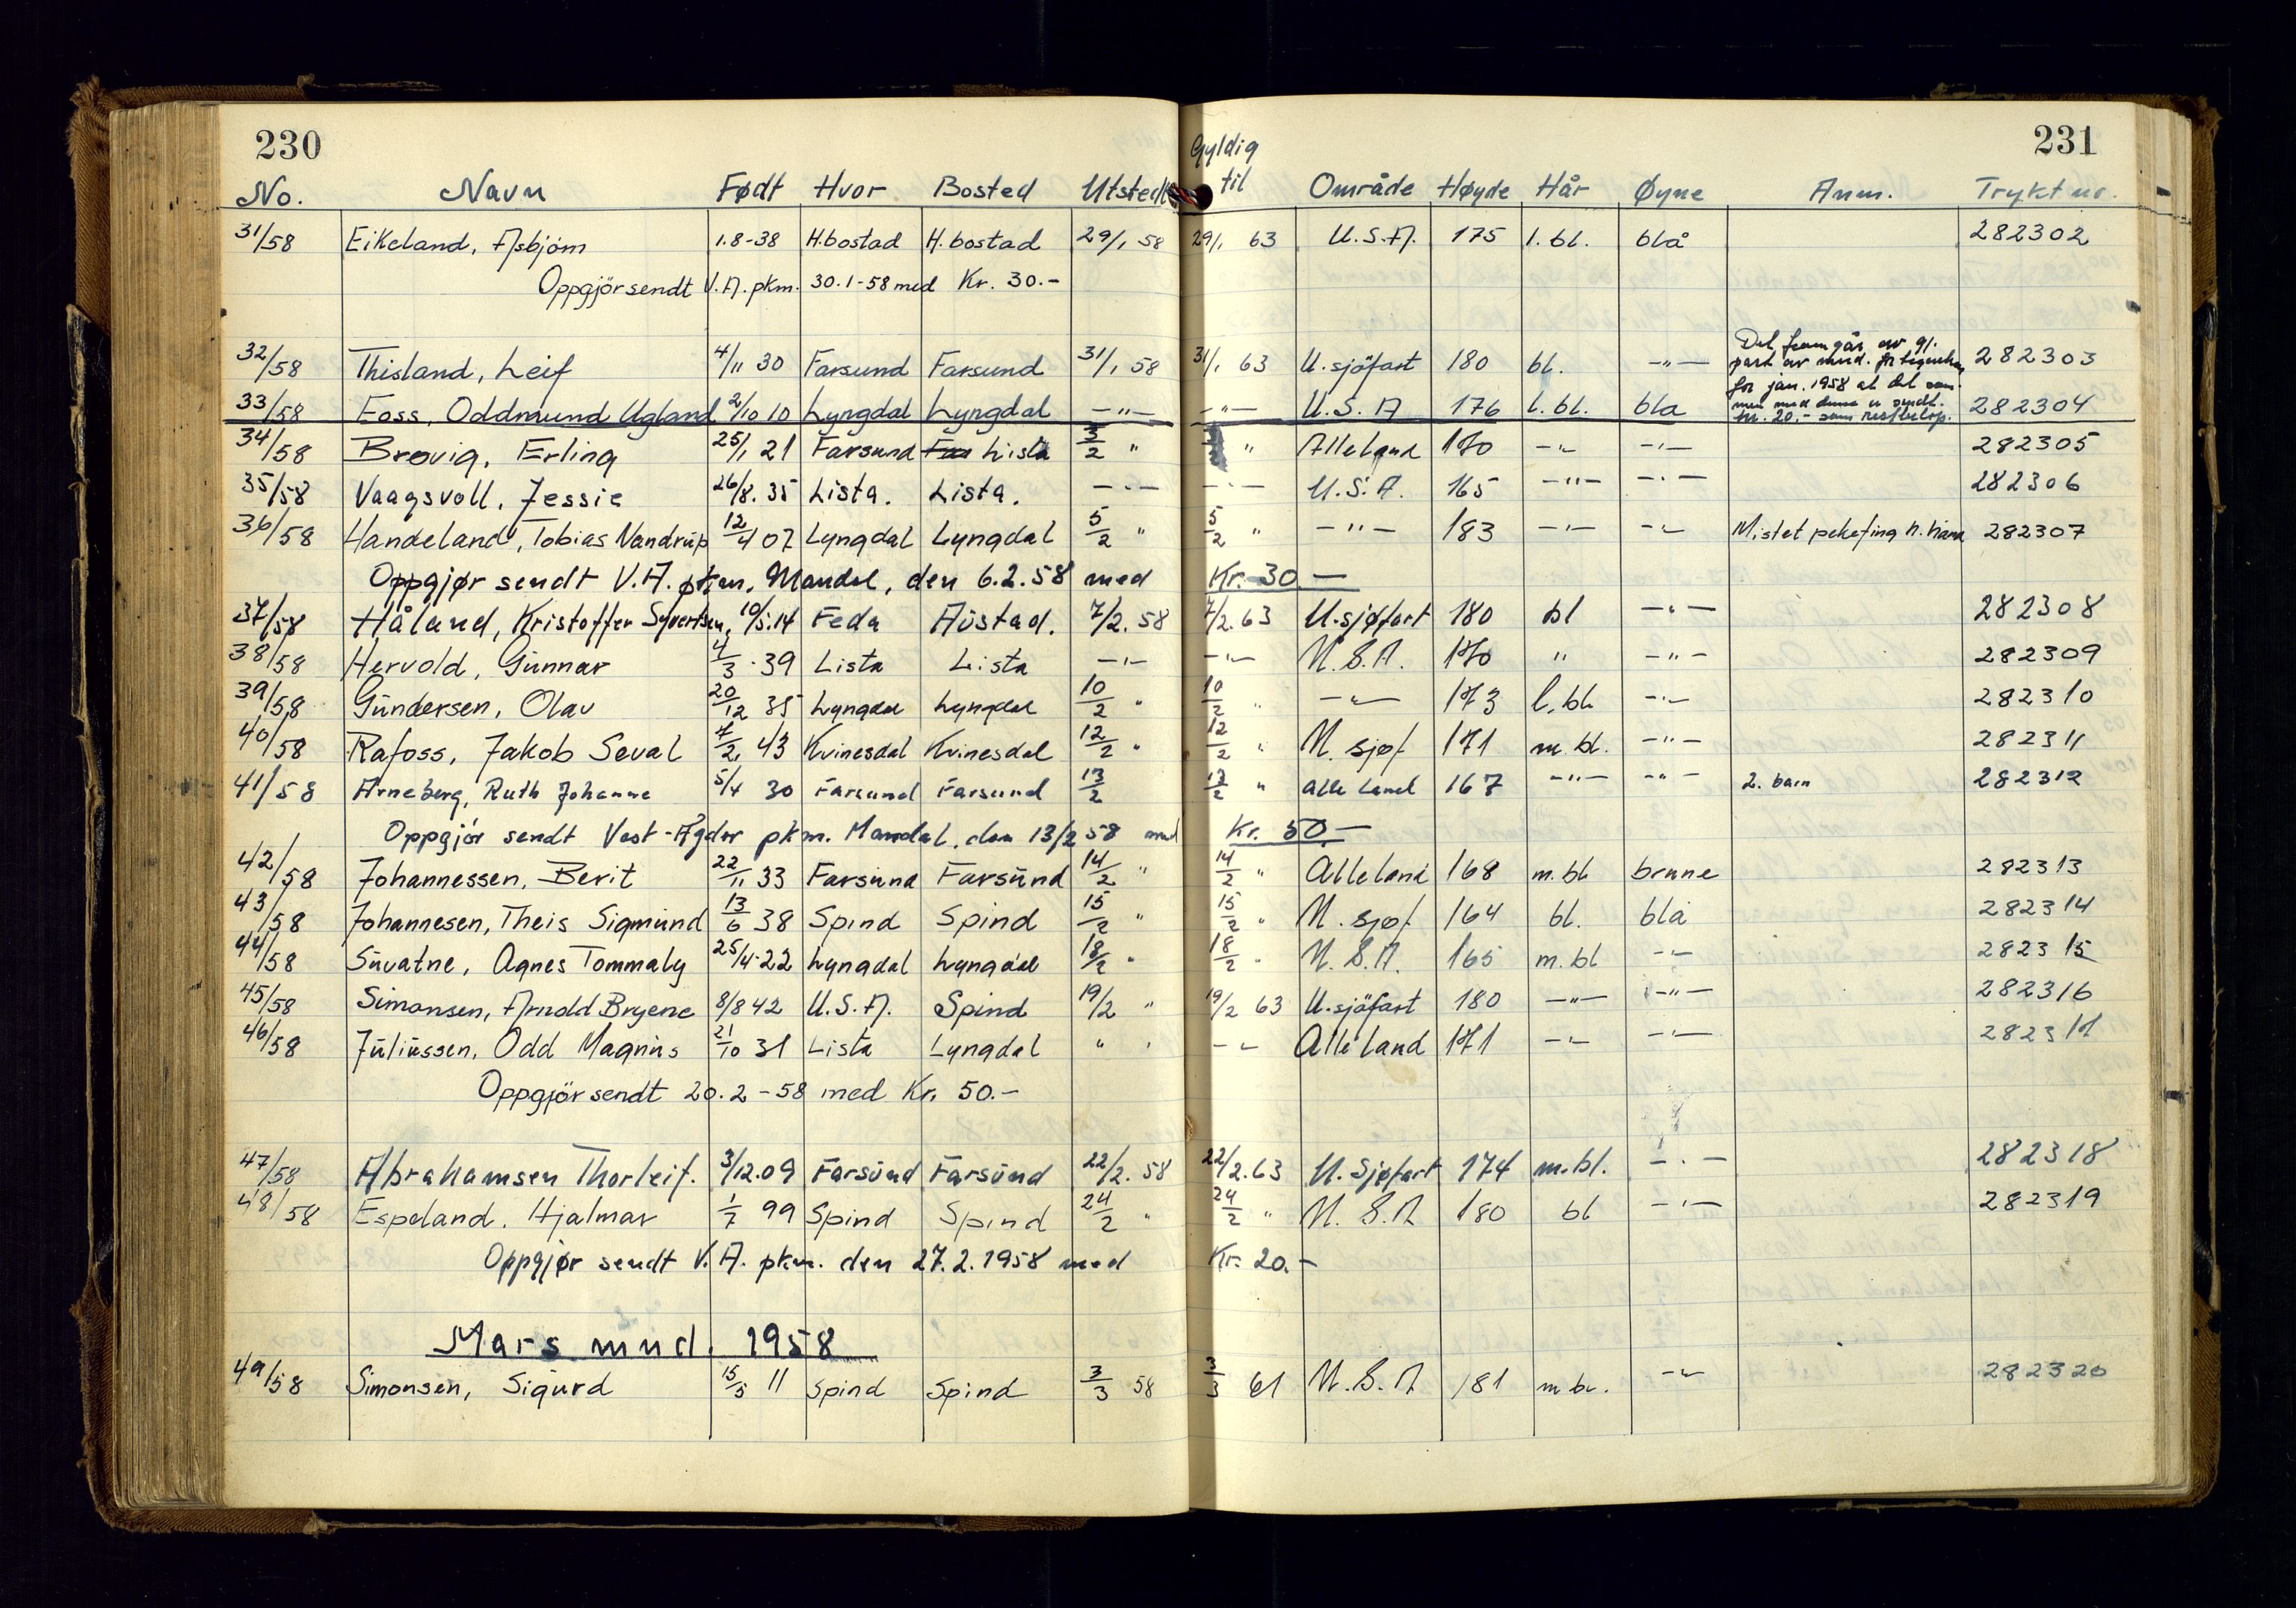 230
231
No. Navn Født Hvor Bosted Utstedt Gyldig til Område Høyde Hår Øyne Anm. Trykt nr.
31/58 Eikeland, Asbjörn 1.8-38 H.bostad H.bostad 29/1 58 29/1 63 U.S.A. 175 l. bl. blå 282302
Oppgjör sendt V.A. pkm. 30.1-58 med Kr. 30.-
32/58 Thisland, Leif 4/11 30 Farsund Farsund 31/1 58 31/1 63 U.sjöfart 180 bl. -"- 282303
Det framgår av gj. part av mnd. for jan. 1958 at det sammen med denne er sendt kr. 20.- som restbelöp.
33/58 Foss, Oddmund Ugland 2/10 10 Lyngdal Lyngdal -"- -"- U.S.A 176 l. bl. blå 282304
34/58 Brøvig, Erling 25/1 21 Farsund Lista 3/2 " " Alle land 170 -"- -"- 282305
35/58 Vaagsvoll, Jessie 26/8. 35 Lista. Lista. -"- -"- U.S.A. 165 -"- -"- 282306
36/58 Handeland, Tobias Vandrup 12/4 07 Lyngdal Lyngdal 5/2 " 5/2 " -"- 183 -"- -"- Mistet pekefing h. hånd 282307
Oppgjør sendt V.A. pkm, Mandal, den 6.2.58 med Kr. 30.-
37/58 Håland, Kristoffer Syvertsen, 10/5.14 Feda Austad. 7/2. 58 7/2. 63 U.sjøfart 180 bl -"- 282308
38/58 Hervold, Gunnar 4/3 39 Lista Lista -"- -"- U.S.A. 170 " -"- 282309
39/58 Gundersen, Olav 20/12 35 Lyngdal Lyngdal 10/2 " 10/2 " -"- 173 l. bl. -"- 282310
40/58 Rafoss, Jakob Seval 7/2 43 Kvinesdal Kvinesdal 12/2 " 12/2 " U. sjøf. 171 m. bl. -"- 282311
41/58 Arneberg, Ruth Johanne 5/4 30 Farsund Farsund 13/2 13/2 " alle land 167 -"- -"- 2. barn 282312
Oppgjör sendt Vest-Agder pkm. Mandal, den 13/2 58 med Kr. 50.-
42/58 Johannessen, Berit 22/11 33 Farsund Farsund 14/2 " 14/2 " Alle land 168 m. bl brune 282313
43/58 Johannesen, Theis Sigmund 13/6 38 Spind Spind 15/2 " 15/2 " U. sjøf. 164 bl. blå 282314
44/58 Suvatne, Agnes Tommaly 25/4 22 Lyngdal Lyngdal 18/2 " 18/2 " U.S.A. 165 m. bl -"- 282315
45/58 Simonsen, Arnold Bryene 8/8 42 U.S.A. Spind 19/2 " 19/2 63 U.sjöfart 180 -"- -"- 282316
46/58 Juliussen, Odd Magnus 21/10 31 Lista Lyngdal " " -"- Alle land 171 -"- -"- 282317
Oppgjör sendt 20.2-58 med Kr. 50.-
47/58 Abrahamsen Thorleif. 3/12.09 Farsund Farsund 22/2. 58 22/2. 63 U. Sjøfart 174 m. bl. -"- 282318
48/58 Espeland, Hjalmar 1/7 99 Spind Spind 24/2 " 24/2 " U.S.A 180 bl -"- 282319
Oppgjør sendt V.A. pkm. den 27.2.1958 med Kr. 20.-
Mars mnd. 1958
49/58 Simonsen, Sigurd 15/5 11 Spind Spind 3/3 58 3/3 61 U.S.A 181 m br. -"- 282320